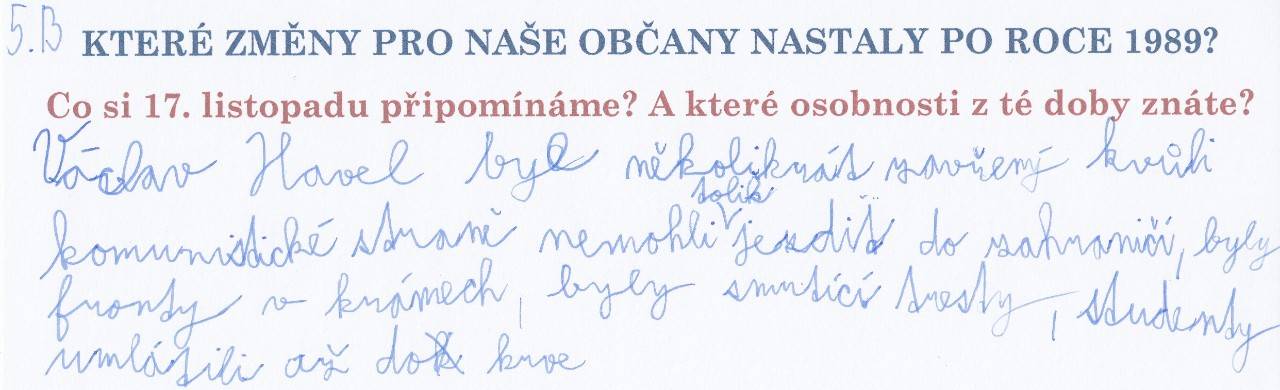 5.B KTERÉ ZMĚNY PRO NAŠE OBČANY NASTALY PO ROCE 1989?
Co si 17. listopadu připomínáme? A které osobnosti z té doby znáte?
Václav Havel byl několikrát zavřený kvůli
komunistické straně nemohli tolik jezdit do zahraničí, byly
fronty v krámech, byly smrtící tresty, studenty
umlátili až do krve